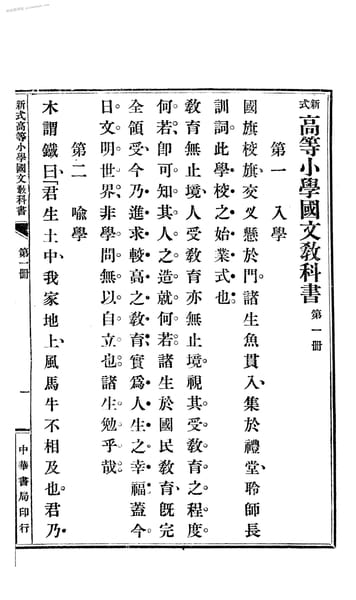 新式高等小學國文敎科書 第一冊
第一 入學
國旗校旗、交叉懸於門、諸生魚貫入、集於禮堂、聆師長
訓詞、此學校之始業式也。
敎育無止境、人受敎育亦無止境、視其受敎育之程度
何若、卽可知其人之造就何若、諸生於國民敎育、旣完
全領受、今乃進求較高之敎育、實爲人生之幸福、蓋今
日文明世界、非學問無以自立也、諸生勉乎哉。
第二 喩學
木謂鐵曰、「君生土中、我家地上、風馬牛不相及也。君乃
新式高等小學國文敎科書 第一冊 一 中華書局印行